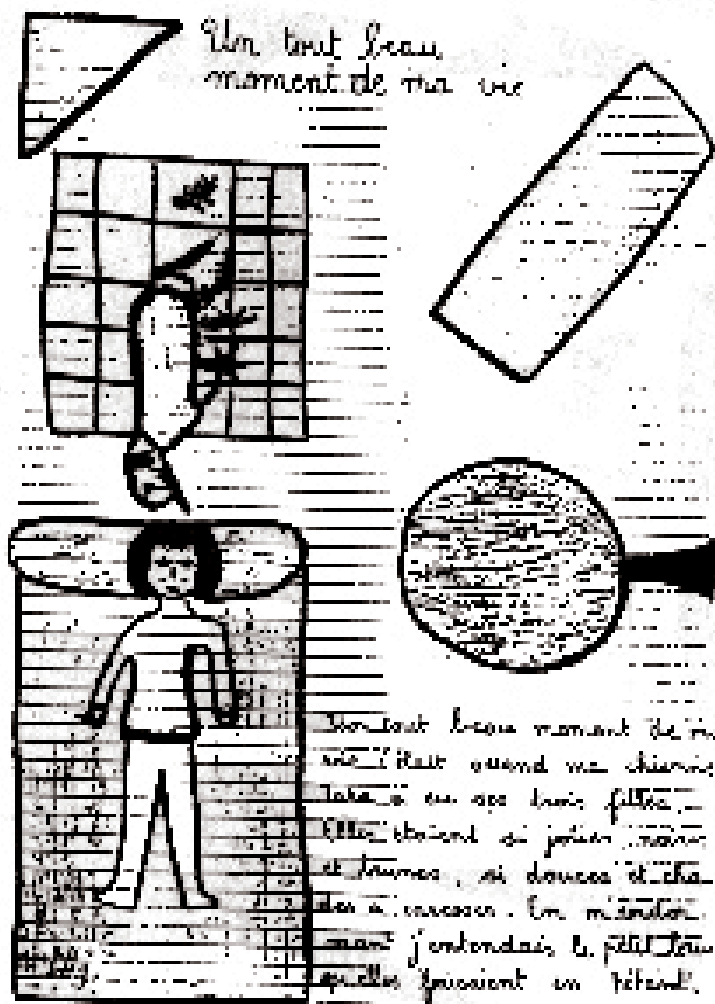 Un tout beau
moment de ma vie
Mon tout beau moment de m
vie c'était quand ma chienne
a eu ses trois filles
Elles étaient si jolies, noires
et brunes, si douces et cha
des à caresser. En m'endor
mant j'entendais le petit
qu'elles faisaient en tétant.